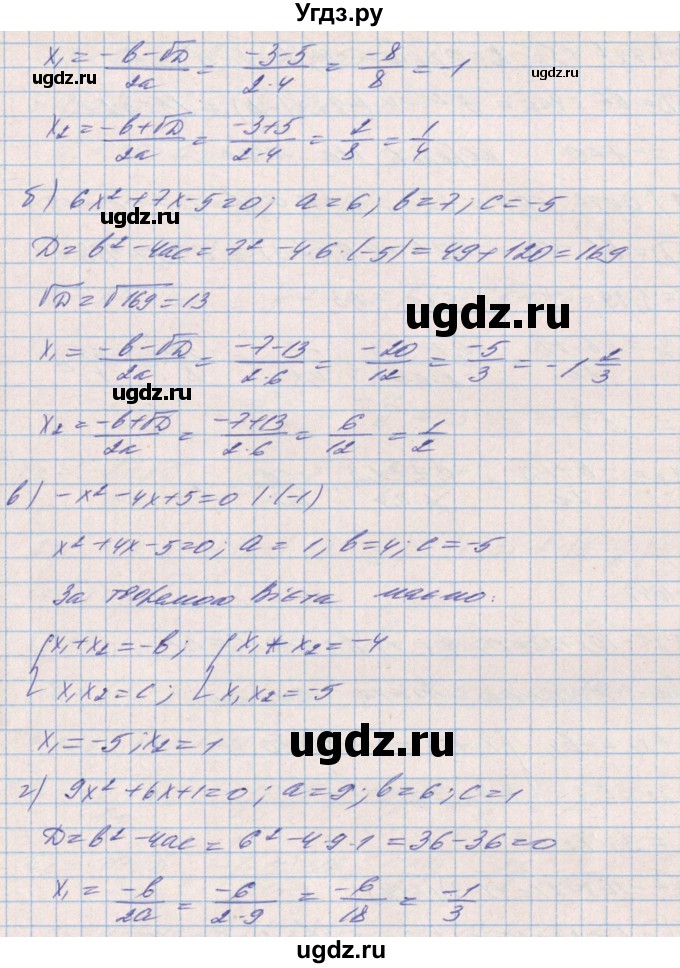 Угдз.ру
x₁ = (-b-√D)/2a = (-3-5)/(2·4) = -8/8 = -1
ugdz.ru
ugdz.ru
x₂ = (-b+√D)/2a = (-3+5)/(2·4) = 2/8 = 1/4
б) 6x² + 7x - 5 = 0; a = 6; b = 7; c = -5
ugdz.ru
D = b² - 4ac = 7² - 4·6·(-5) = 49 + 120 = 169
√D = √169 = 13
ugdz.ru
x₁ = (-b-√D)/2a = (-7-13)/(2·6) = -20/12 = -5/3 = -1 2/3
ugdz.ru
x₂ = (-b+√D)/2a = (-7+13)/(2·6) = 6/12 = 1/2
в) -x² - 4x + 5 = 0 |·(-1)
x² + 4x - 5 = 0; a = 1; b = 4; c = -5
За теоремою Вієта маємо:
{x₁ + x₂ = -b; {x₁ + x₂ = -4
x₁x₂ = c; x₁x₂ = -5
x₁ = -5; x₂ = 1
ugdz.ru
г) 9x² + 6x + 1 = 0; a = 9; b = 6; c = 1
D = b² - 4ac = 6² - 4·9·1 = 36 - 36 = 0
x₁ = -b/2a = -6/(2·9) = -6/18 = -1/3
ugdz.ru